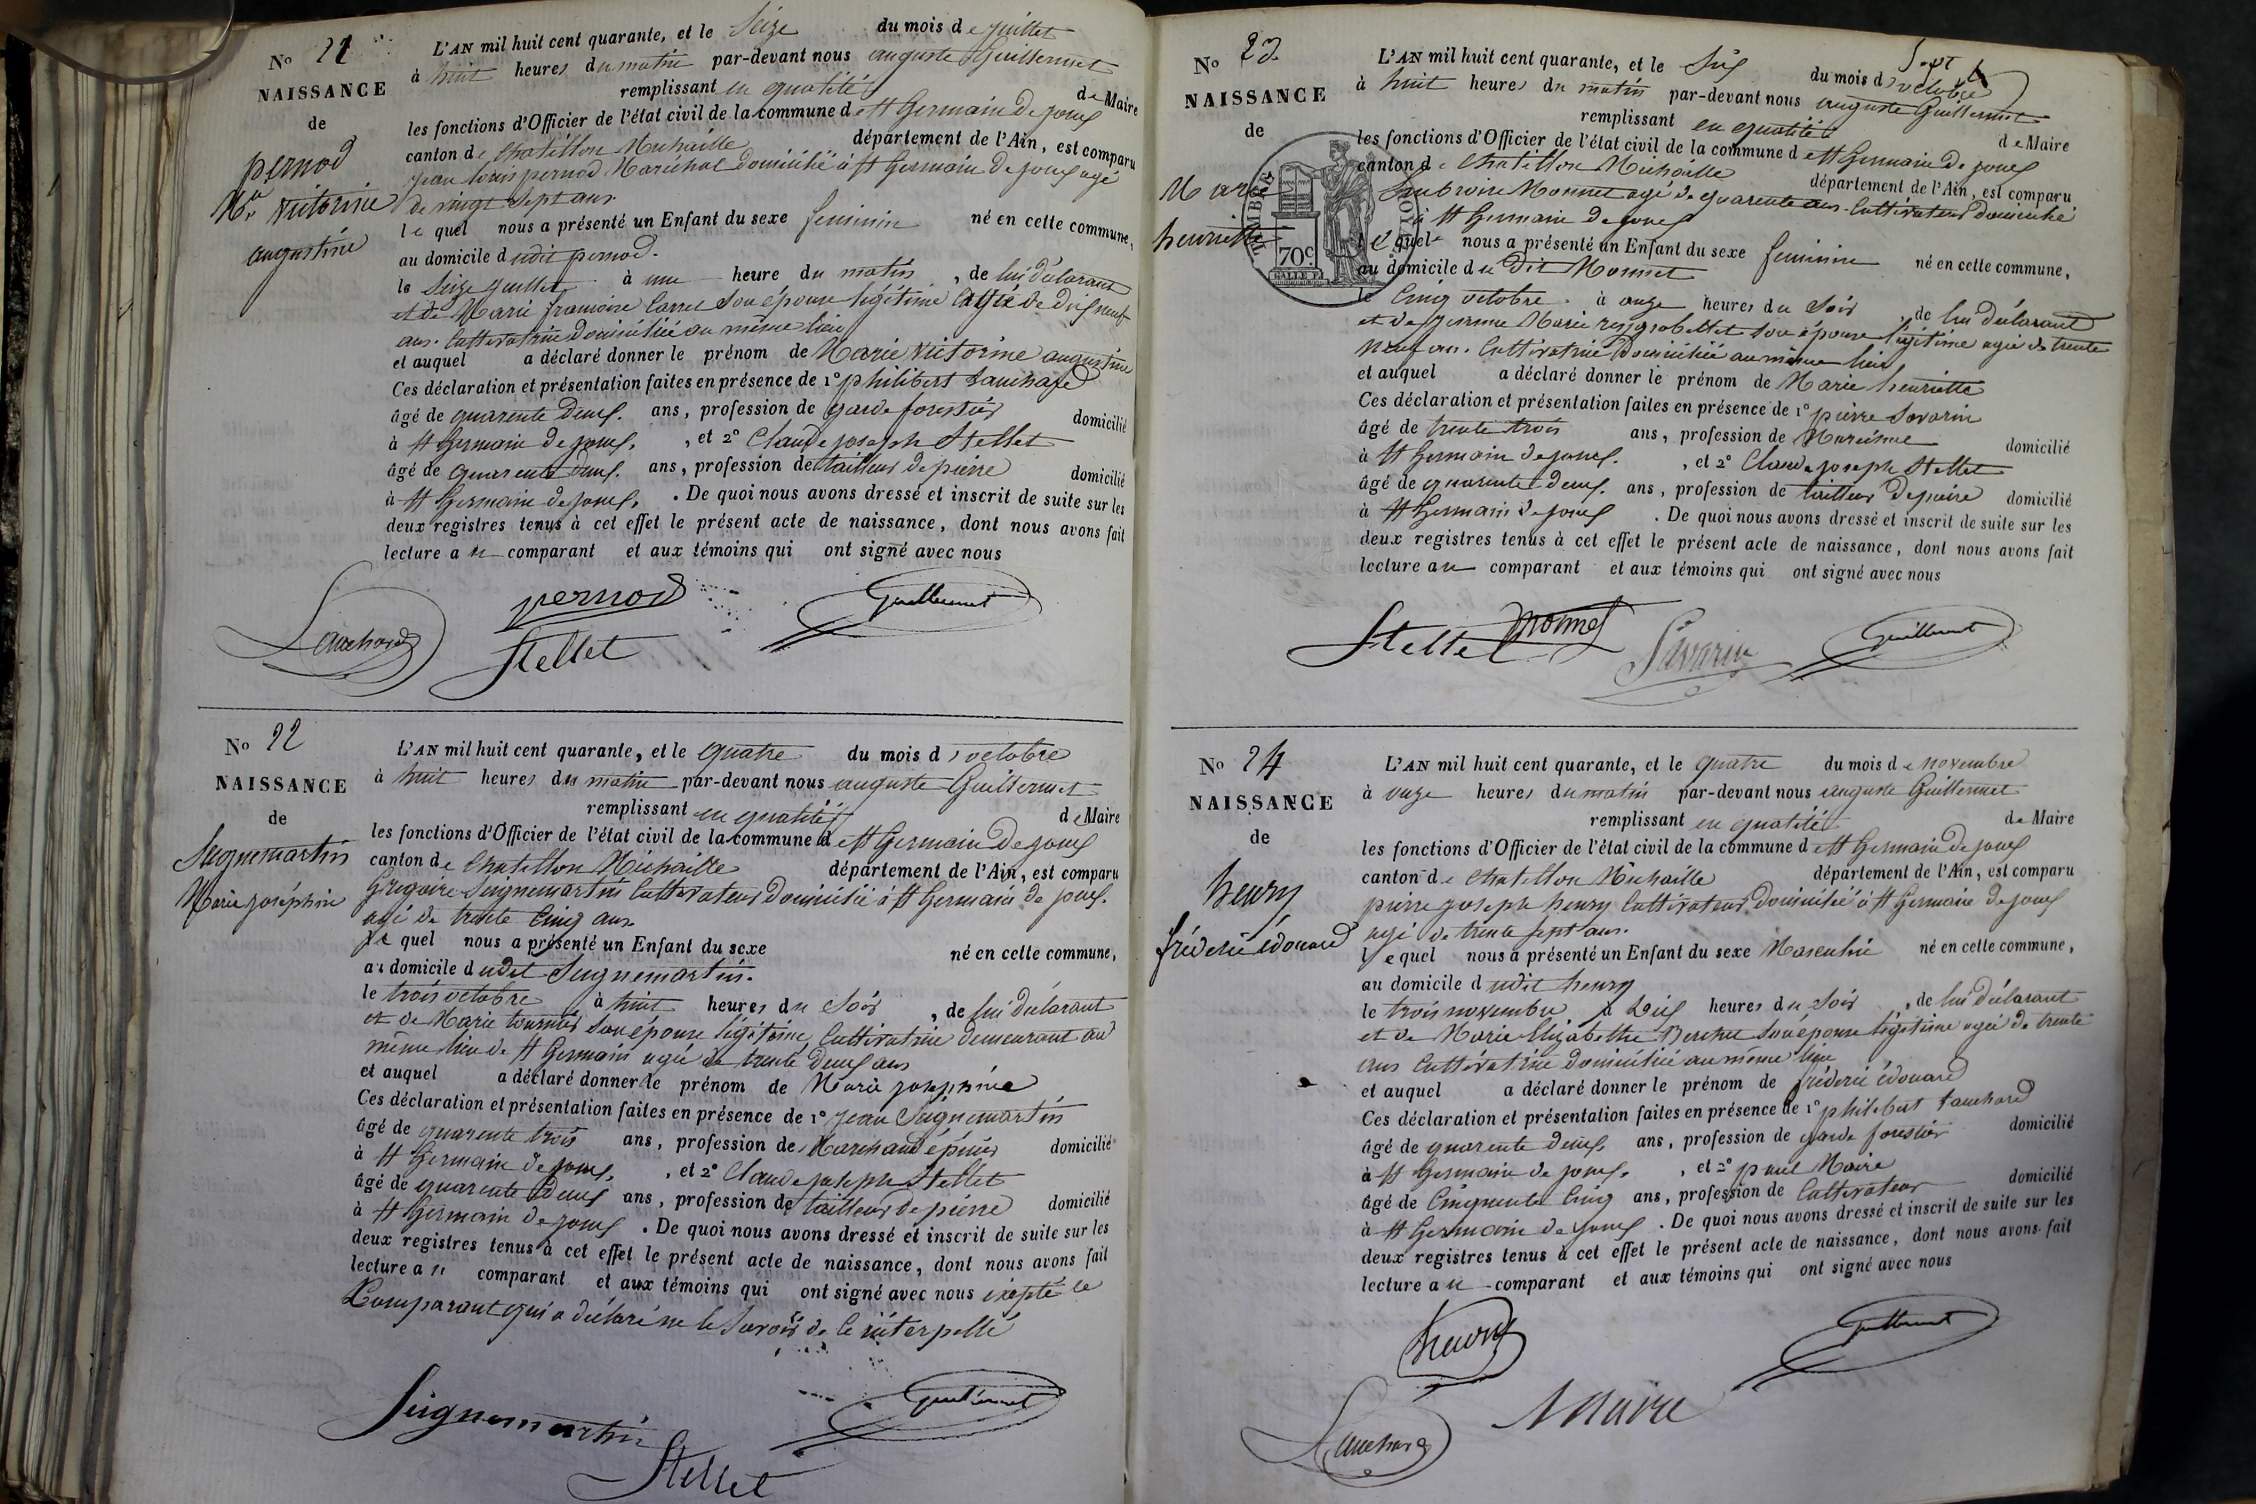 No 21
NAISSANCE
de
pernod
Mie victorine
augustine
L'AN mil huit cent quarante, et le Seize du mois de juillet
à huit heures du matin par-devant nous auguste Guillermet
remplissant en qualité de Maire
les fonctions d'Officier de l'état civil de la commune de St Germain De joux
canton de Chatillon Michaille département de l'Ain, est comparu
jean louis pernod Maréchal domicilié à St Germain de joux agé
de vingt Sept ans
le quel nous a présenté un Enfant du sexe feminin né en cette commune,
au domicile dudit pernod.
le Seize juillet à une heure du matin, de lui déclarant
et de Marie francoise Carrel son épouse légitime agée de dix neuf
ans. Cultivatrice domiciliée au même lieu
et auquel a déclaré donner le prénom de Marie Victorine augustine
Ces déclaration et présentation faites en présence de 1° philibert Lanchard
âgé de quarente Deux. ans, profession de garde forestier domicilié
à St Germain de joux. , et 2° Claude joseph Stellet
âgé de quarente deux. ans, profession de tailleur de pierre domicilié
à St Germain de joux. . De quoi nous avons dressé et inscrit de suite sur les
deux registres tenus à cet effet le présent acte de naissance, dont nous avons fait
lecture au comparant et aux témoins qui ont signé avec nous
Lanchard pernod Stellet Guillermet
No 22
NAISSANCE
de
Seignemartin
Marie joséphine
L'AN mil huit cent quarante, et le quatre du mois d'octobre
à huit heures du matin par-devant nous auguste Guillermet
remplissant en qualité de Maire
les fonctions d'Officier de l'état civil de la commune de St Germain De joux
canton de Chatillon Michaille département de l'Ain, est comparu
Grégoire Seignemartin Cultivateur Domicilié à St Germain de joux.
agé de trente Cinq ans
le quel nous a présenté un Enfant du sexe né en cette commune,
au domicile dudit Seignemartin.
le trois octobre à huit heures du Soir, de lui déclarant
et de Marie tournier Son épouse légitime, Cultivatrice demeurant au
même lieu de St Germain agée de trente Deux ans
et auquel a déclaré donner le prénom de Marie joséphine
Ces déclaration et présentation faites en présence de 1° jean Seignemartin
âgé de quarente trois ans, profession de Marchand épicier domicilié
à St Germain de joux. , et 2° Claude joseph Stellet
âgé de quarente Deux ans, profession de tailleur de pierre domicilié
à St Germain de joux . De quoi nous avons dressé et inscrit de suite sur les
deux registres tenus à cet effet le présent acte de naissance, dont nous avons fait
lecture au comparant et aux témoins qui ont signé avec nous excepté le
Comparant qui a déclaré ne le Savoir de ce interpellé
Seignemartin Stellet Guillermet
No 23
NAISSANCE
de
Marie
henriette
TIMBRE ROYAL
70c
L'AN mil huit cent quarante, et le Six du mois d'octobre
à huit heures du matin par-devant nous auguste Guillermet
remplissant en qualité de Maire
les fonctions d'Officier de l'état civil de la commune de St Germain De joux
canton de Chatillon Michaille département de l'Ain, est comparu
Ambroise Monnet agé de quarente ans. Cultivateur domicilié
à St Germain de joux
le quel nous a présenté un Enfant du sexe feminin né en cette commune,
au domicile du Dit Monnet
le Cinq octobre. à onze heures du Soir, de lui déclarant
et de jeanne Marie son épouse légitime agée de trente
neuf ans. Cultivatrice Domiciliée au même lieu
et auquel a déclaré donner le prénom de Marie henriette
Ces déclaration et présentation faites en présence de 1° pierre Savarin
âgé de trente trois ans, profession de domicilié
à St Germain de joux. , et 2° Claude joseph Stellet
âgé de quarente deux. ans, profession de tailleur de pierre domicilié
à St Germain de joux . De quoi nous avons dressé et inscrit de suite sur les
deux registres tenus à cet effet le présent acte de naissance, dont nous avons fait
lecture au comparant et aux témoins qui ont signé avec nous
Stellet Monnet Savarin Guillermet
No 24
NAISSANCE
de
henry
fréderic édouard
L'AN mil huit cent quarante, et le quatre du mois de novembre
à onze heures du matin par-devant nous auguste Guillermet
remplissant en qualité de Maire
les fonctions d'Officier de l'état civil de la commune de St Germain De joux
canton de Chatillon Michaille département de l'Ain, est comparu
pierre joseph henry Cultivateur domicilié à St Germain de joux
agé de trente sept ans.
le quel nous a présenté un Enfant du sexe Masculin né en cette commune,
au domicile dudit henry
le trois novembre à Dix heures du Soir, de lui déclarant
et de Marie Elizabethe Son épouse légitime agée de trente
ans Cultivatrice domiciliée au même lieu
et auquel a déclaré donner le prénom de fréderic édouard
Ces déclaration et présentation faites en présence de 1° philibert Lanchard
âgé de quarente deux, ans, profession de garde forestier domicilié
à St Germain de joux. , et 2° paul Maire
âgé de Cinquente Cinq ans, profession de Cultivateur domicilié
à St Germain de joux . De quoi nous avons dressé et inscrit de suite sur les
deux registres tenus à cet effet le présent acte de naissance, dont nous avons fait
lecture au comparant et aux témoins qui ont signé avec nous
henry Guillermet
Lanchard Maire